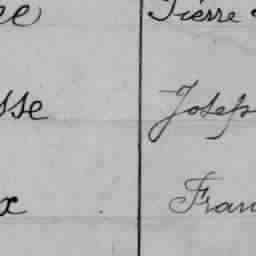 ee Pierre
sse Josep
x Fran